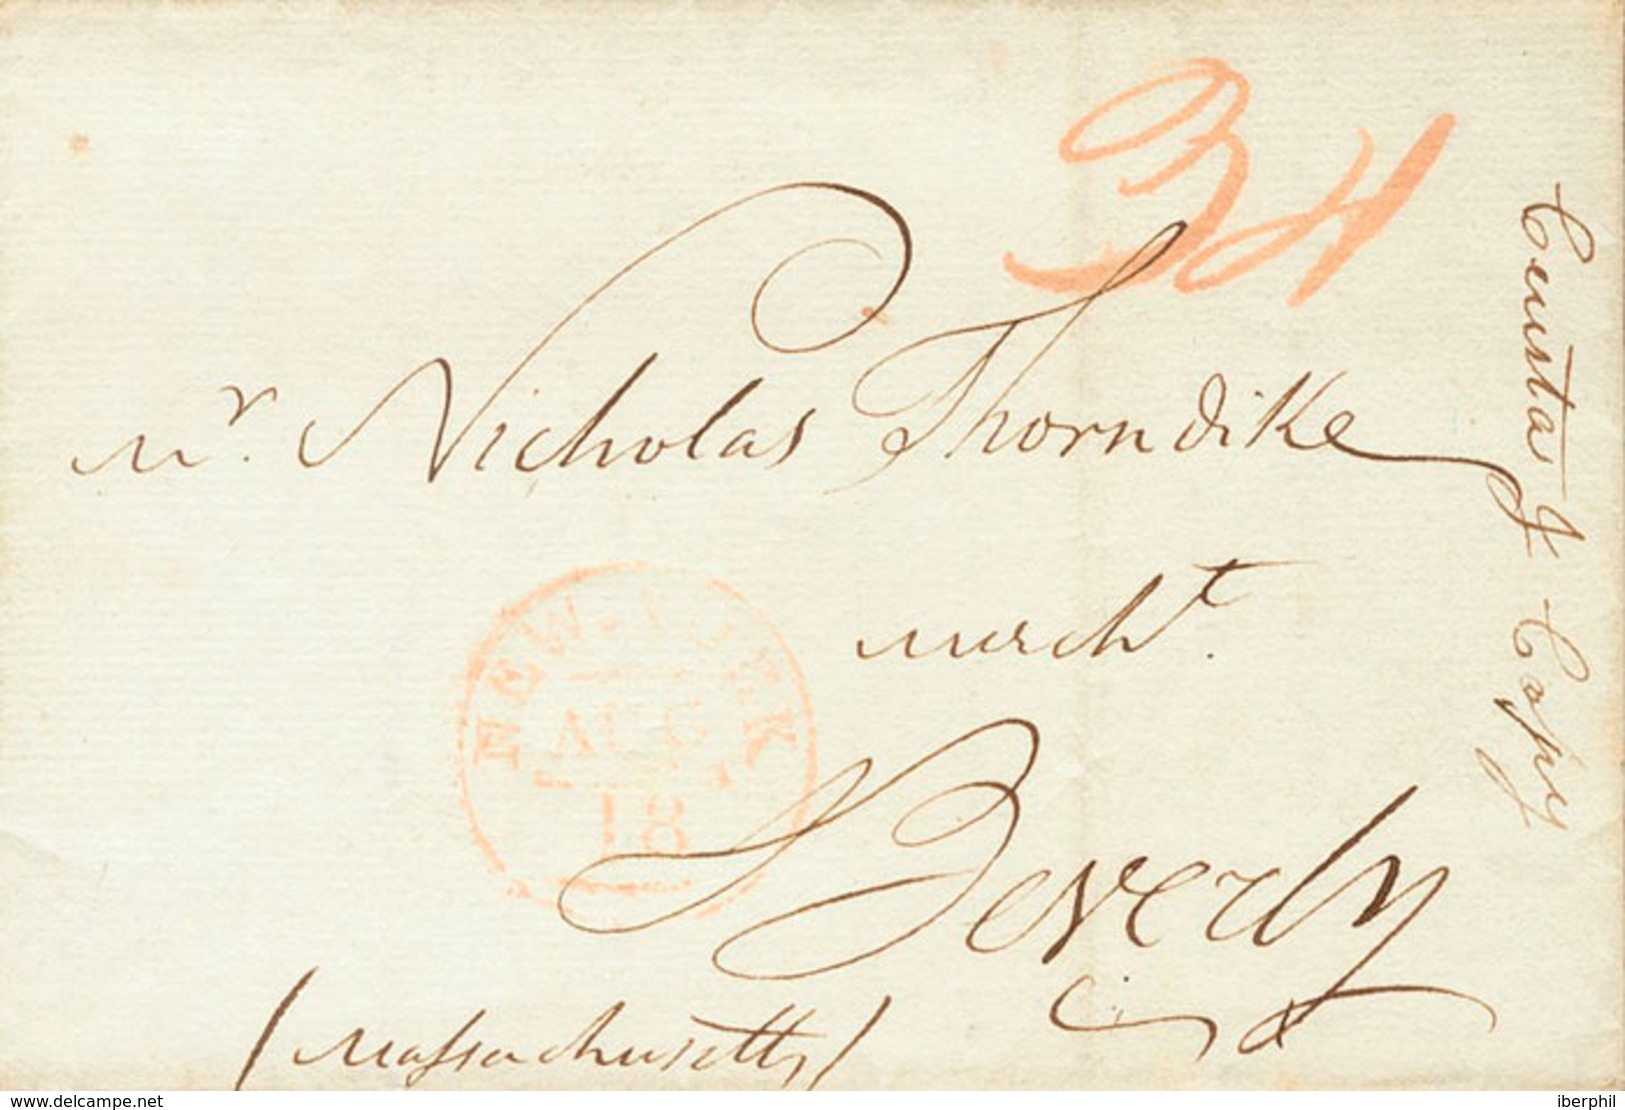 34
Mr. Nicholas Thorndike
mercht.
Beverly
(Massachusetts)
NEW-YORK
AUG
18
Copy
www.delcampe.net
iberphil